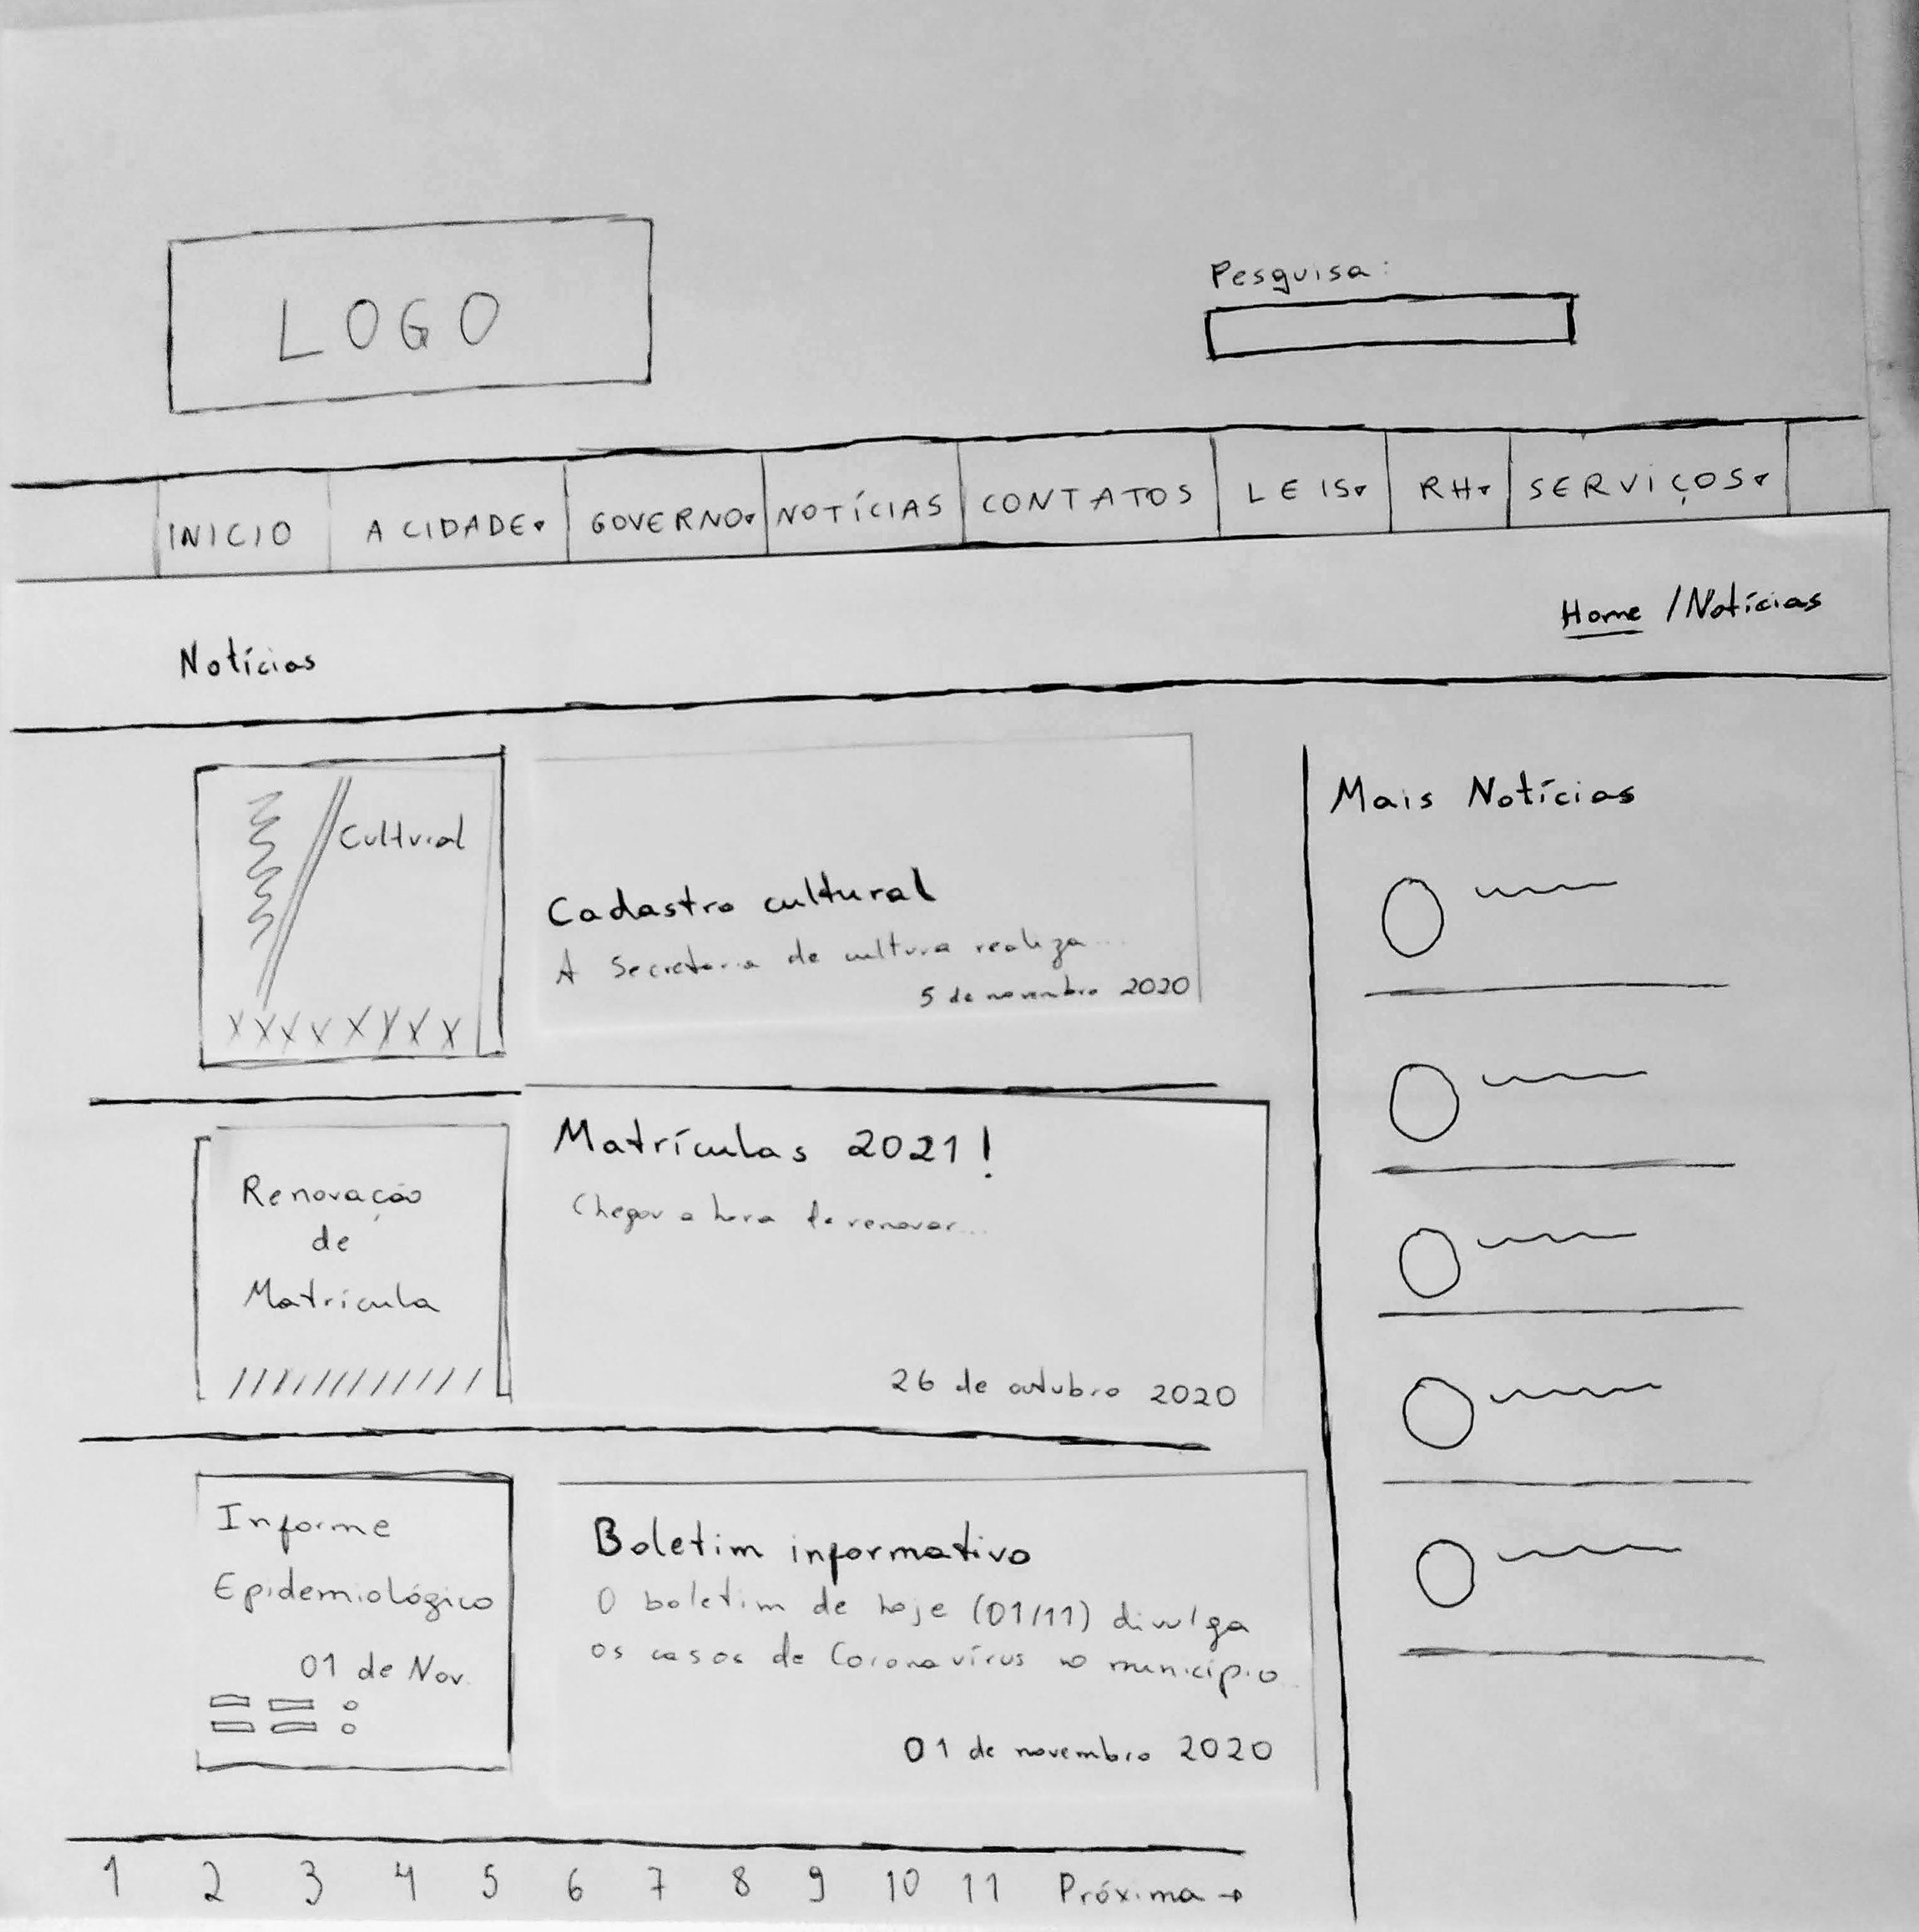 LOGO
Pesquisa:
INICIO A CIDADE GOVERNO NOTÍCIAS CONTATOS LEIS RH SERVIÇOS
Home / Notícias
Notícias
Cultural
XXXXXXXX
Cadastro cultural
A Secretaria de cultura realiza...
5 de novembro 2020
Renovação
de
Matrícula
Matrículas 2021!
Chegou a hora de renovar...
26 de outubro 2020
Informe
Epidemiológico
01 de Nov.
Boletim informativo
O boletim de hoje (01/11) divulga
os casos de Coronavírus no município...
01 de novembro 2020
Mais Notícias
1 2 3 4 5 6 7 8 9 10 11 Próxima →